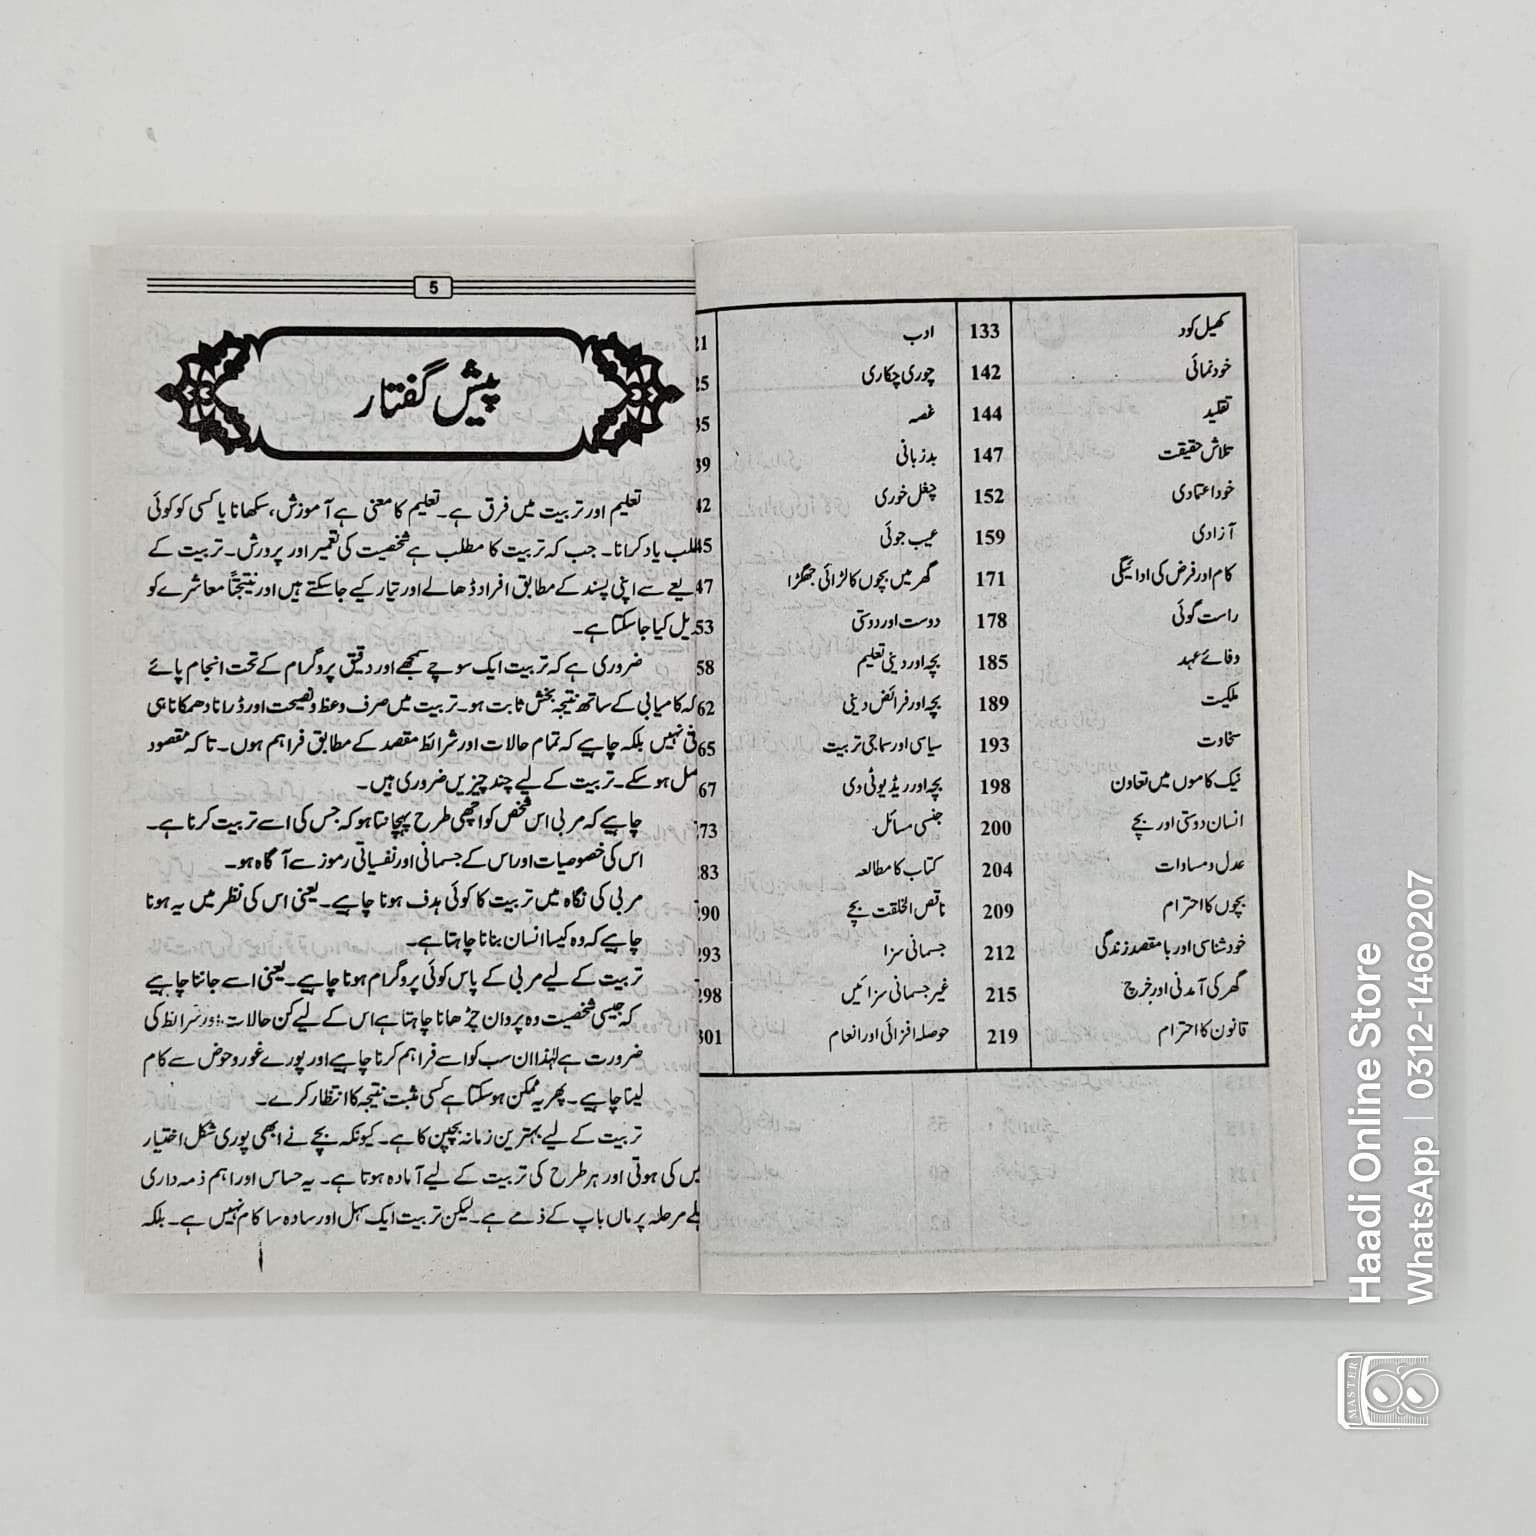 کھیل کود 133 ادب 21
خودنمائی 142 چوری چکاری 25
تقلید 144 غصہ 35
تلاش حقیقت 147 بدزبانی 39
خوداعتمادی 152 چغل خوری 42
آزادی 159 عیب جوئی 45
کام اور فرض کی ادائیگی 171 گھر میں بچوں کا لڑائی جھگڑا 47
راست گوئی 178 دوست اور دوستی 53
وفائے عہد 185 بچہ اور دینی تعلیم 58
ملکیت 189 بچہ اور فرائض دینی 62
سخاوت 193 سیاسی اور سماجی تربیت 65
نیک کاموں میں تعاون 198 بچہ اور ریڈیو ٹی وی 67
انسان دوستی اور بچے 200 جنسی مسائل 273
عدل و مساوات 204 کتاب کا مطالعہ 283
بچوں کا احترام 209 ناقص الخلقت بچے 290
خود شناسی اور بامقصد زندگی 212 جسمانی سزا 293
گھر کی آمدنی اور خرچ 215 غیر جسمانی سزائیں 298
قانون کا احترام 219 حوصلہ افزائی اور انعام 301
5
پیش گفتار
تعلیم اور تربیت میں فرق ہے۔ تعلیم کا معنی ہے آموزش، سکھانا یا کسی کو کوئی
یاد کرانا۔ جب کہ تربیت کا مطلب ہے شخصیت کی تعمیر اور پرورش۔ تربیت کے
سے اپنی پسند کے مطابق افراد ڈھالے اور تیار کیے جا سکتے ہیں اور نتیجتاً معاشرے کو
کیا جا سکتا ہے۔
ضروری ہے کہ تربیت ایک سوچے سمجھے اور دقیق پروگرام کے تحت انجام پائے
کہ کامیابی کے ساتھ نتیجہ بخش ثابت ہو۔ تربیت میں صرف وعظ و نصیحت اور ڈرانا دھمکانا ہی
نہیں بلکہ چاہیے کہ تمام حالات اور شرائط مقصد کے مطابق فراہم ہوں۔ تاکہ مقصود
ہو سکے۔ تربیت کے لیے چند چیزیں ضروری ہیں۔
چاہیے کہ مربی اس شخص کو اچھی طرح پہچانتا ہو کہ جس کی اسے تربیت کرنا ہے۔
اس کی خصوصیات اور اس کے جسمانی اور نفسیاتی رموز سے آگاہ ہو۔
مربی کی نگاہ میں تربیت کا کوئی ہدف ہونا چاہیے۔ یعنی اس کی نظر میں یہ ہونا
چاہیے کہ وہ کیسا انسان بنانا چاہتا ہے۔
تربیت کے لیے مربی کے پاس کوئی پروگرام ہونا چاہیے۔ یعنی اسے جاننا چاہیے
کہ جیسی شخصیت وہ پروان چڑھانا چاہتا ہے اس کے لیے کن حالات اور شرائط کی
ضرورت ہے لہٰذا ان سب کو اسے فراہم کرنا چاہیے اور پورے غور و حوض سے کام
لینا چاہیے۔ پھر یہ ممکن ہو سکتا ہے کسی مثبت نتیجہ کا انتظار کرے۔
تربیت کے لیے بہترین زمانہ بچپن کا ہے۔ کیونکہ بچے نے ابھی پوری شکل اختیار
کی ہوتی اور ہر طرح کی تربیت کے لیے آمادہ ہوتا ہے۔ یہ حساس اور اہم ذمہ داری
مرحلہ پر ماں باپ کے ذمے ہے۔ لیکن تربیت ایک سہل اور سادہ سا کام نہیں ہے۔ بلکہ
Haadi Online Store
WhatsApp | 0312-1460207
MASTER